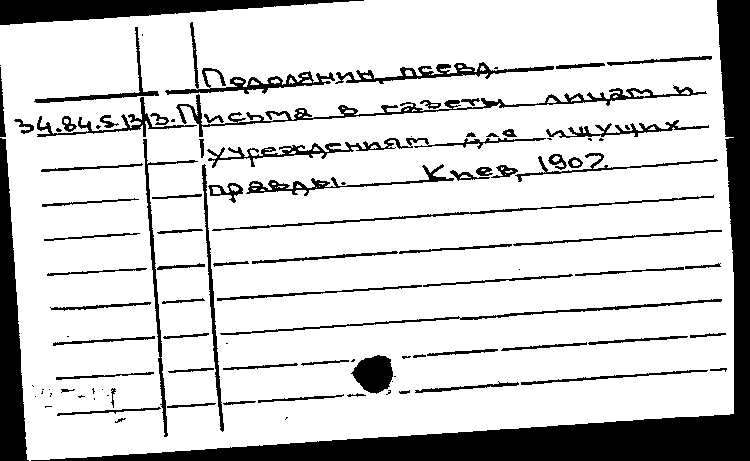 Подолянин, псевд.
34.84.5.1313. Письма в газеты лицам и
учреждениям для ищущих
правды. Киев, 1907